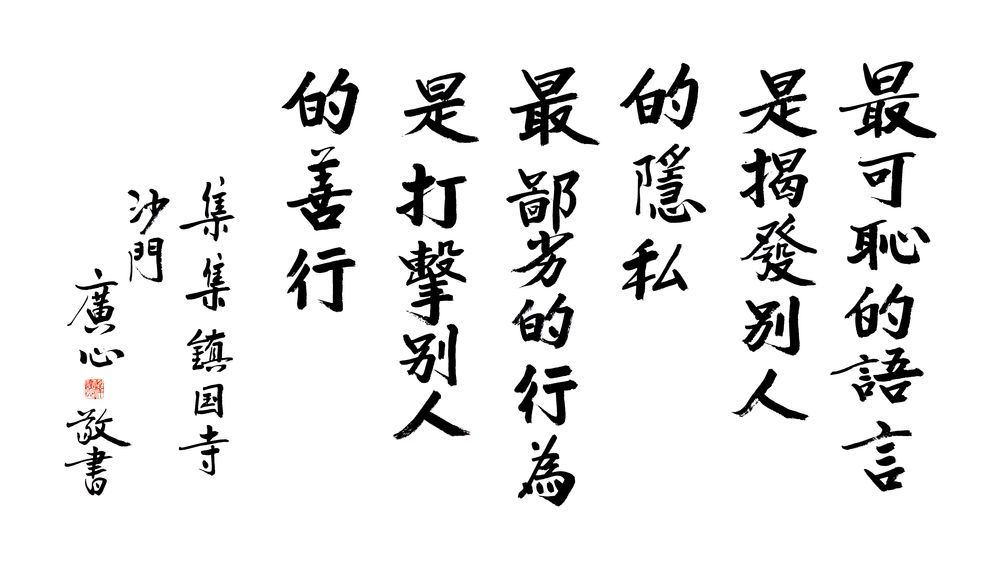 最可恥的語言
是揭發別人
的隱私
最鄙劣的行為
是打擊別人
的善行
集集鎮国寺
沙門
廣心
敬書